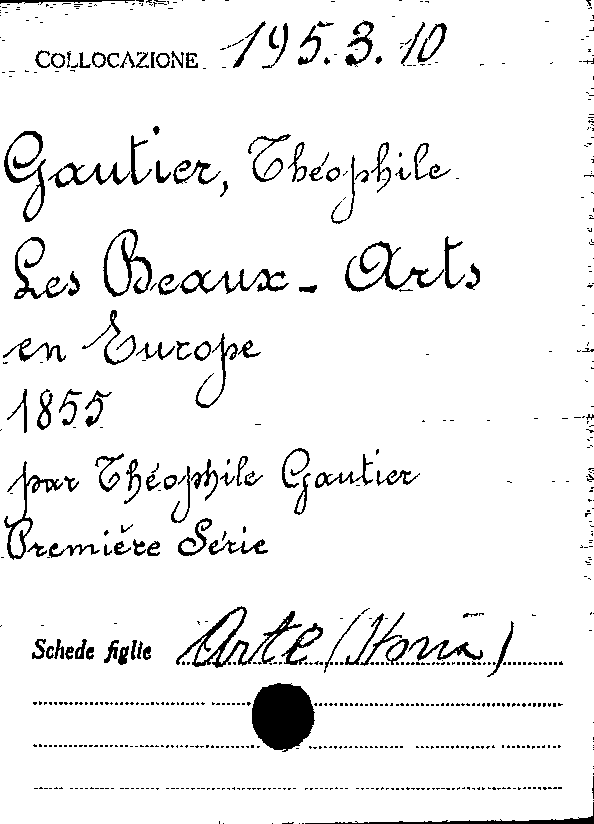 COLLOCAZIONE 195.3.10
Gautier, Théophile
Les Beaux-Arts
en Europe
1855
par Théophile Gautier
Première Série
Schede figlie Arte (Storia)